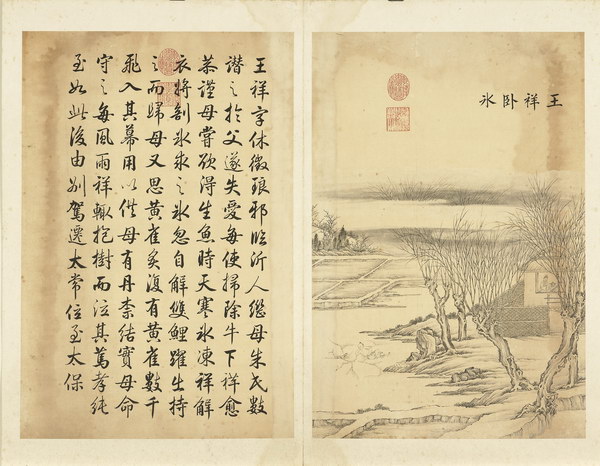 王祥卧氷
王祥字休徵琅邪臨沂人繼母朱氏數
譖之於父遂失愛每使掃除牛下祥愈
恭謹母嘗欲得生魚時天寒氷凍祥解
衣將剖氷求之氷忽自解雙鯉躍出持
之而歸母又思黃雀炙復有黃雀數千
飛入其幕用以供母有丹柰結實母命
守之每風雨祥輒抱樹而泣其篤孝純
至如此後由別駕遷太常位至太保